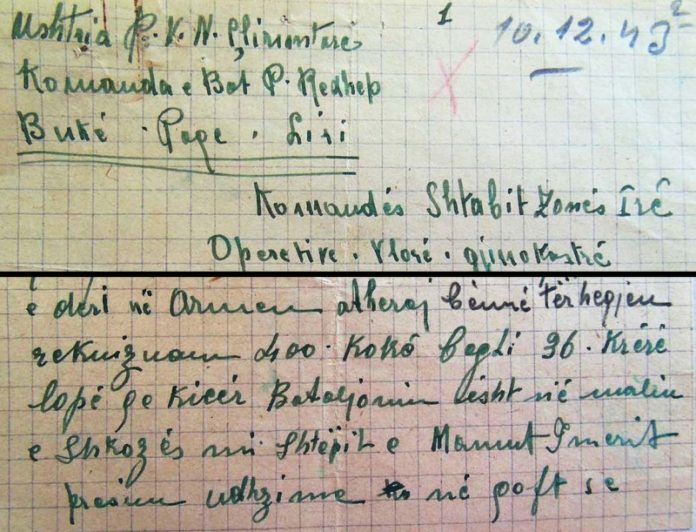 Ushtria P. K. N. Çlirimtarés
1
10.12.43
2
Komanda e Bat P. Rexhep
Buké. Paqe. Liri
Komandés Shtabit Zonés Iré
Operative. Vloré. gjinokastré
e deri në Armen atheraj bénné térheqjen
rekuiznam 400. Kokó bagti 96. Kréré
lopé
Bataljonin ésht në malin
e Shkozés mi Shtëpit e Mamut Ymerit
presim udhzime né qoft se